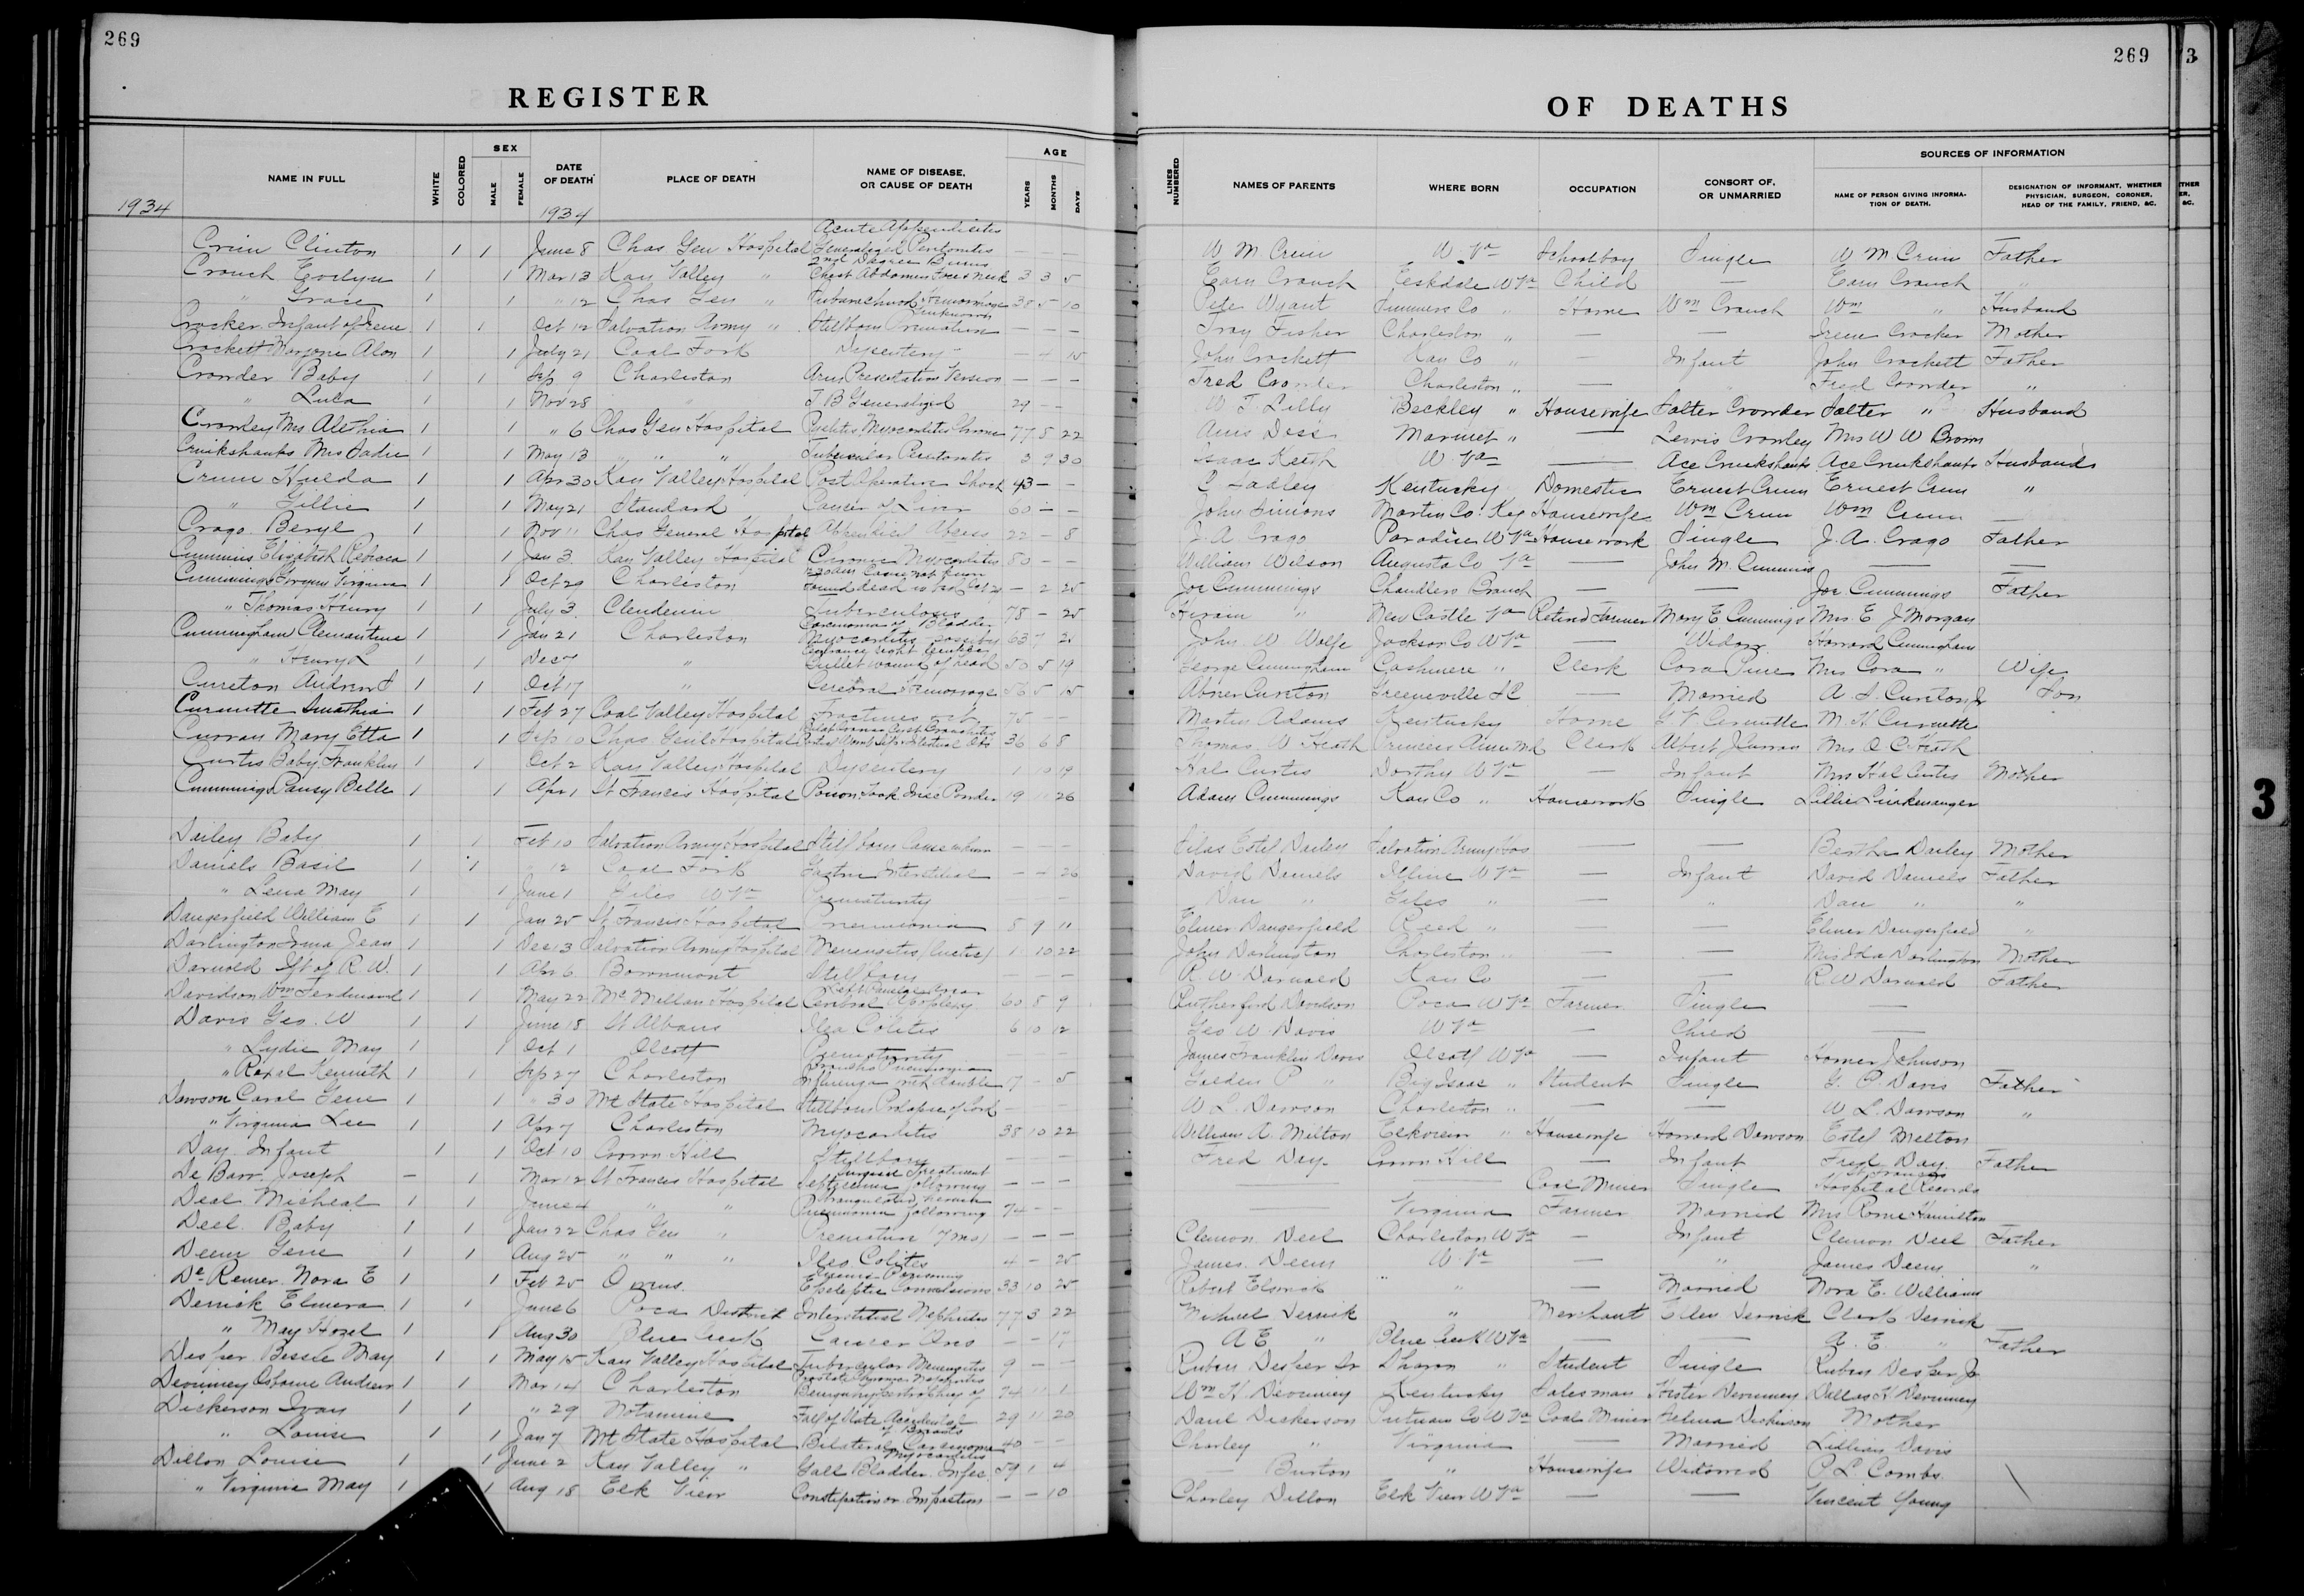 269
REGISTER
NAME IN FULL WHITE COLORED SEX MALE FEMALE DATE OF DEATH PLACE OF DEATH NAME OF DISEASE, OR CAUSE OF DEATH AGE YEARS MONTHS DAYS
1934 1934
Acute Appendicitis
Crim Clinton 1 1 June 8 Chas Gen Hospital Generalized Peritonitis — — —
2nd Degree Burns
Crouch Evelyn 1 1 Mar 13 Kan Valley " Chest Abdomen Face & Neck 3 3 5
" Grace 1 1 " 12 Chas Gen " Hemorrhage 38 5 10
unknown
Crocker Infant of Irene 1 1 Oct 12 Salvation Army " Stillborn Premature — — —
Crockett Marjorie Alon 1 1 July 21 Coal Fork Dysentery — 4 15
Crowder Baby 1 1 Sep 9 Charleston Arm Presentation Version — — —
" Lula 1 1 Nov 28 " T B Generalized 29 — —
Crowley Mrs Alethia 1 1 " 6 Chas Gen Hospital Pyelitis, Myocarditis Chronic 77 8 22
Cruikshanks Mrs Sadie 1 1 May 13 " " " Tubercular Peritonitis 3 9 30
Crum Hulda 1 1 Apr 30 Kan Valley Hospital Post Operative Shock 43 — —
" Gillie 1 1 May 21 Standard Cancer of Liver 60 — —
Crago Beryl 1 1 Nov 11 Chas General Hospital Abcess 22 — 8
Cummins Elizabeth Rebecca 1 1 Jan 3 Kan Valley Hospital Chronic Myocarditis 80 — —
Cummings Virginia 1 1 Oct 29 Charleston Found dead in bed — 2 25
" Thomas Henry 1 1 July 3 Clendenin Tuberculosis 78 — 25
Carcinoma of Bladder
Cunningham Clemantine 1 1 Jan 21 Charleston Myocarditis 63 7 21
" Henry L 1 1 Dec 7 " Bullet wound of head 50 5 19
Cureton Andrew S 1 1 Oct 17 " Cerebral Hemorrage 56 5 15
Curnutte 1 1 Feb 27 Coal Valley Hospital Fractures 75 — —
Curran Mary Etta 1 1 Sep 10 Chas Genl Hospital 36 6 8
Curtis Baby Franklin 1 1 Oct 2 Kan Valley Hospital Dysentery 1 10 19
Cummings Pansy Belle 1 1 Apr 1 St Francis Hospital Poison Took Powder 19 11 26
Dailey Baby 1 1 Feb 10 Salvation Army Hospital Still born Cause unknown — — —
Daniels Basil 1 1 " 12 Coal Fork Gastro Intestinal — — 26
" Lena May 1 1 June 1 Giles W Va Prematurity —
Dangerfield William E 1 1 Jan 25 St Francis Hospital Pneumonia 8 9 11
Darlington Irma Jean 1 1 Dec 13 Salvation Army Hospital Menengitis 1 10 22
Darnold Ift of R. W. 1 1 Apr 6 Bowmont Stillborn — — —
Davidson Wm Ferdinand 1 1 May 22 McMillan Hospital Cerebral Apoplexy 60 8 9
Davis Geo. W 1 1 June 18 St Albans Ileo Colitis 6 10 12
" Lydie May 1 1 Oct 1 Olcott Prematurity — — —
Broncho Pneumonia
" Royal Kenneth 1 1 Sep 27 Charleston Influenza with double 7 — 5
Dawson Carol Gene 1 1 " 30 Mt State Hospital Stillborn Prolapse of Cord — — —
" Virginia Lee 1 1 Apr 7 Charleston Myocarditis 38 10 22
Day Infant 1 1 Oct 10 Crown Hill Stillborn — — —
De Barr Joseph — 1 Mar 12 St Francis Hospital Septicemia following — — —
Strangulated hernia
Deal Micheal 1 1 June 4 " " Pneumonia following 74 — —
Deel Baby 1 1 Jan 22 Chas Gen " Premature (7 mo) — — —
Deem Gene 1 1 Aug 25 " " " Ileo Colitis 4 — 25
Uremic Poisoning
De Remer Nora E 1 1 Feb 25 Epileptic Convulsions 33 10 25
Derrick Elmera 1 1 June 6 Poca District Interstitial Nephritis 77 3 22
" May Hazel 1 1 Aug 30 Blue Creek — — 17
Desper Bessie May 1 1 May 15 Kan Valley Hospital Tubercular Menengitis 9 — —
Devinney Osborne Andrew 1 1 Mar 14 Charleston Benign hypertrophy of 74 11 1
Dickerson Ivan 1 1 " 29 Notamine Fall of Slate Accidental 29 11 20
of Breasts
" Louise 1 1 Jan 7 Mt State Hospital Bilateral Carcinoma 40 — —
Myocarditis
Dillon Louise 1 1 June 2 Kan Valley " Gall Bladder Infec 59 1 4
" Virginia May 1 1 Aug 18 Elk View Constipation or Impaction — — 10
269
OF DEATHS
LINES NUMBERED NAMES OF PARENTS WHERE BORN OCCUPATION CONSORT OF, OR UNMARRIED SOURCES OF INFORMATION
NAME OF PERSON GIVING INFORMATION OF DEATH. DESIGNATION OF INFORMANT, WHETHER PHYSICIAN, SURGEON, CORONER, HEAD OF THE FAMILY, FRIEND, &C.
W M Crum W. Va Schoolboy Single W M Crum Father
Earn Crouch Eeskdale W Va Child — Earn Crouch "
Pete Wyant Summers Co " Home Wm Crouch Wm " Husband
Troy Fisher Charleston " — — Irene Crocker Mother
John Crockett Kan Co " — Infant John Crockett Father
Fred Crowder Charleston " — " Fred Crowder "
W T. Lilly Beckley " Housewife Salter Crowder Salter " Husband
Marmet " — Lewis Crowley Mrs W W Brown
Isaac Keith W. Va — Ace Cruikshanks Ace Cruikshanks Husband
Kentucky Domestic Ernest Crum Ernest Crum "
John Simons Martin Co. Key Housewife Wm Crum Wm Crum —
J. A. Crago Paradise W Va Housework Single J. A. Crago Father
William Wilson Augusta Co Va — John M. Cummins — —
Joe Cummings Chandlers Branch — — Joe Cummings Father
Hiram " New Castle Va Retired Farmer Mary E Cummings Mrs. E J Morgan
John W Wolfe Jackson Co W Va — Widow Howard Cunningham
George Cunningham Cashmere " Clerk Cora Mrs Cora " Wife
Abner Cureton Greeneville S C — Married A. S. Cureton Jr Son
Martin Adams Kentucky Home G V Curnutte M. H. Curnutte
Thomas W Heath Princess Anne Md Clerk Albert Curran Mrs O C Heath
Hal Curtis Dorthy W Va — Infant Mrs Hal Curtis Mother
Adam Cummings Kan Co " Housework Single Lillie
Silas Estel Dailey Salvation Army Hos — — Bertha Dailey Mother
David Daniels W Va — Infant David Daniels Father
Dan " Giles " — " Dan " "
Elmer Dangerfield Reed " — — Elmer Dangerfield "
John Darlington Charleston " — — Mrs Ida Darlington Mother
R W Darnold Kan Co — — R W Darnold Father
Rutherford Davidson Poca W Va Farmer Single —
Geo W Davis W Va — Child —
James Franklin Davis Olcott W Va — Infant Homer Johnson
Golden P " Big Isaac " Student Single G. P. Davis Father
W L. Dawson Charleston " — — W L. Dawson "
William A. Milton Elkview " Housewife Howard Dawson Estel Melton
Fred Day Crown Hill — Infant Fred Day Father
— — Coal Miner Single St Francis Hospital Records
— Virginia Farmer Married Mrs Rome Hamilton
Clemon Deel Charleston W Va — Infant Clemon Deel Father
James Deem W. Va — " James Deem "
Robert Elswick " — Married Nora E. Williams
Michael Derrick " Merchant Ellen Derrick Clark Derrick
A E " Blue Creek W Va — — A. E. " Father
Ruben Desper Jr Sharon " Student Single Ruben Desper Jr
Wm H. Devinney Kentucky Salesman Hester Devinney Dallas H Devinney
Daniel Dickerson Putnam Co W Va Coal Miner Selma Dickinson Mother
Charley " Virginia — Married Lillian Davis
— Burton " Housewife Widowed P. L. Combs
Charley Dillon Elk View W Va — — Vincent Young
3
3